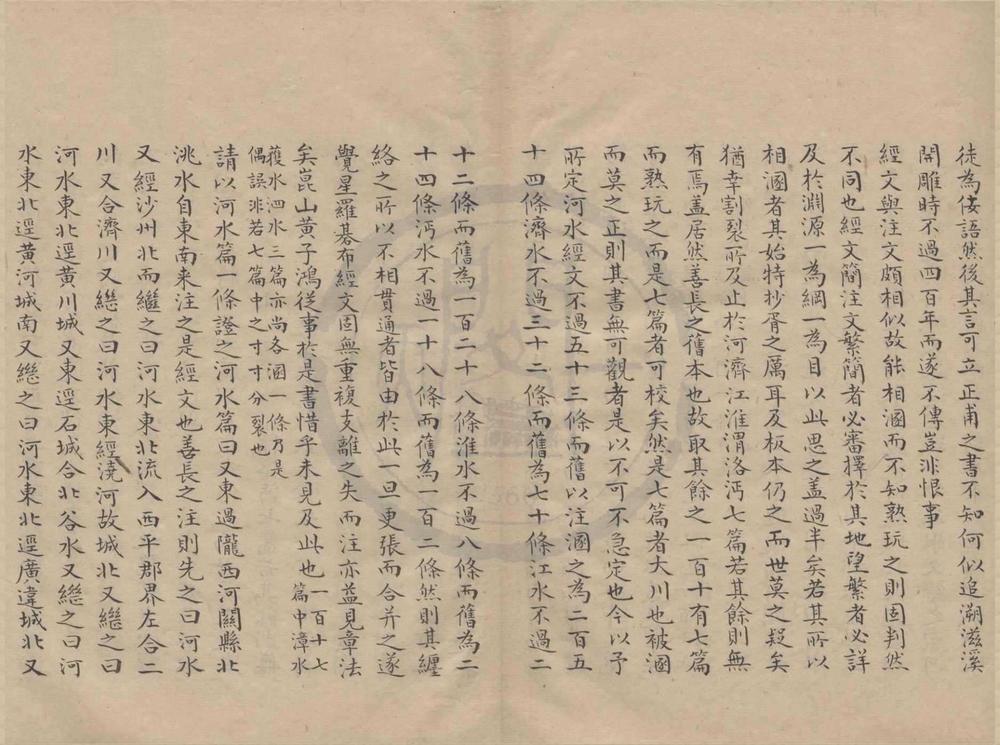 徒為佞語然後其言可立正甫之書不知何似追溯滋溪
開雕時不過四百年而遂不傳豈非恨事
經文與注文頗相似故能相溷而不知熟玩之則固判然
不同也經文簡注文繁簡者必審擇於其地望繁者必詳
及於淵源一為綱一為目以此思之蓋過半矣若其所以
相溷者其始特抄胥之厲耳及板本仍之而世莫之疑矣
猶幸割裂所及止於河濟江淮渭洛沔七篇若其餘則無
有焉蓋居然善長之舊本也故取其餘之一百十有七篇
而熟玩之而是七篇者可校矣然是七篇者大川也被溷
而莫之正則其書無可觀者是以不可不急定也今以予
所定河水經文不過五十三條而舊以注溷之為二百五
十四條濟水不過三十二條而舊為七十條江水不過二
十二條而舊為一百二十八條淮水不過八條而舊為二
十四條沔水不過一十八條而舊為一百二條然則其纏
絡之所以不相貫通者皆由於此一旦更張而合并之遂
覺星羅碁布經文固無重複支離之失而注亦益見章法
矣崑山黃子鴻從事於是書惜乎未見及此也一百十七篇中漳水
獲水泗水三篇亦尚各溷一條乃是偶誤非若七篇中之寸寸分裂也
請以河水篇一條證之河水篇曰又東過隴西河關縣北
洮水自東南来注之是經文也善長之注則先之曰河水
又經沙州北而繼之曰河水東北流入西平郡界左合二
川又合濟川又繼之曰河水東經澆河故城北又繼之曰
河水東北逕黄川城又東逕石城合北谷水又繼之曰河
水東北逕黄河城南又繼之曰河水東北逕廣違城北又